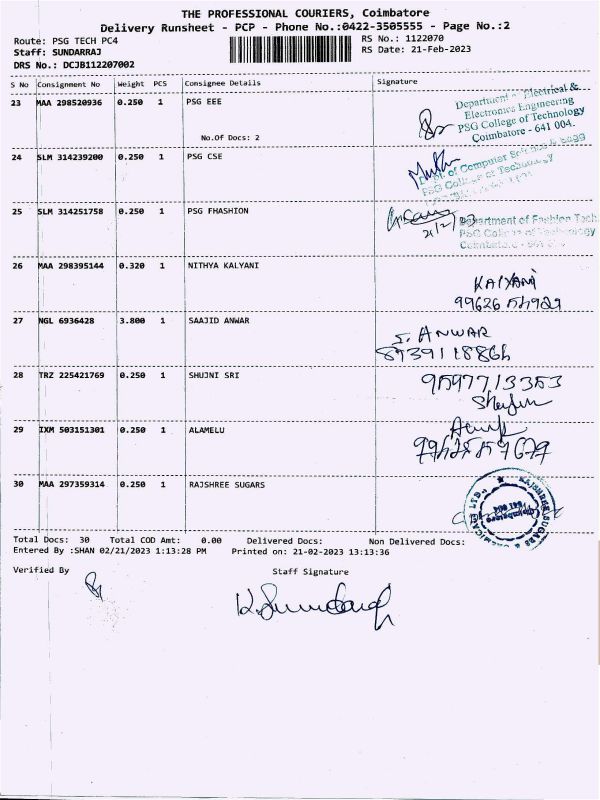 THE PROFESSIONAL COURIERS, Coimbatore
Delivery Runsheet - PCP - Phone No.:0422-3505555 - Page No.:2
Route: PSG TECH PC4
RS No.: 1122070
Staff: SUNDARRAJ
RS Date: 21-Feb-2023
DRS No.: DCJB112207002
S No Consignment No Weight PCS Consignee Details Signature
23 MAA 298520936 0.250 1 PSG EEE
No.Of Docs: 2
Department of Electrical &
Electronics Engineering
PSG College of Technology
Coimbatore - 641 004.
24 SLM 314239200 0.250 1 PSG CSE
Dept. of Computer Science & Engg
PSG College of Technology
25 SLM 314251758 0.250 1 PSG FHASHION
21/2/23
Department of Fashion Tech
PSG College of Technology
Coimbatore - 641
26 MAA 298395144 0.320 1 NITHYA KALYANI
KALYANI
99626
27 NGL 6936428 3.800 1 SAAJID ANWAR
S. ANWAR
28 TRZ 225421769 0.250 1 SHUJNI SRI
9597713353
29 IXM 503151301 0.250 1 ALAMELU
30 MAA 297359314 0.250 1 RAJSHREE SUGARS
RAJSHREE SUGARS & CHEMICALS LTD.,
Coimbatore
641 004
Total Docs: 30 Total COD Amt: 0.00 Delivered Docs: Non Delivered Docs:
Entered By :SHAN 02/21/2023 1:13:28 PM Printed on: 21-02-2023 13:13:36
Verified By Staff Signature
K. Sundaraj